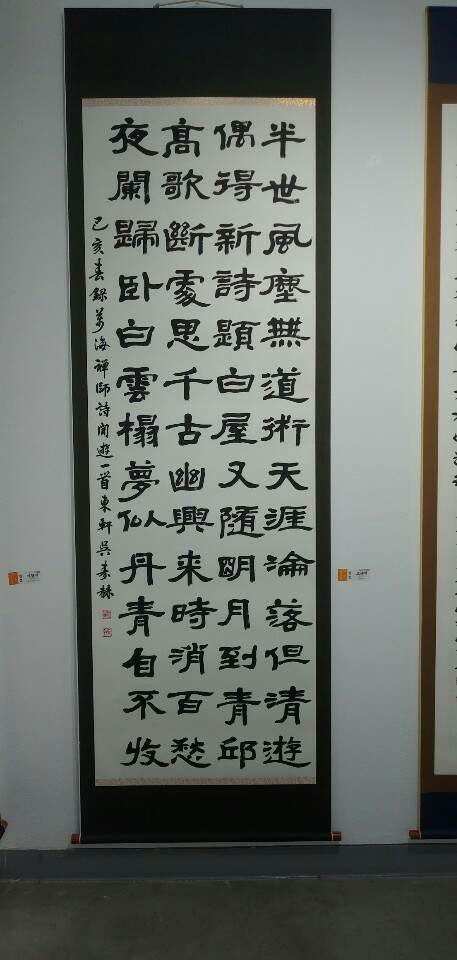 半世風塵無道術天涯淪落但清遊
偶得新詩題白屋又随明月到青邱
高歌斷處思千古幽興来時消百愁
夜闌歸卧白雲榻夢似丹青自不收
己亥春錄萬海禪師詩閒遊一首東軒吳